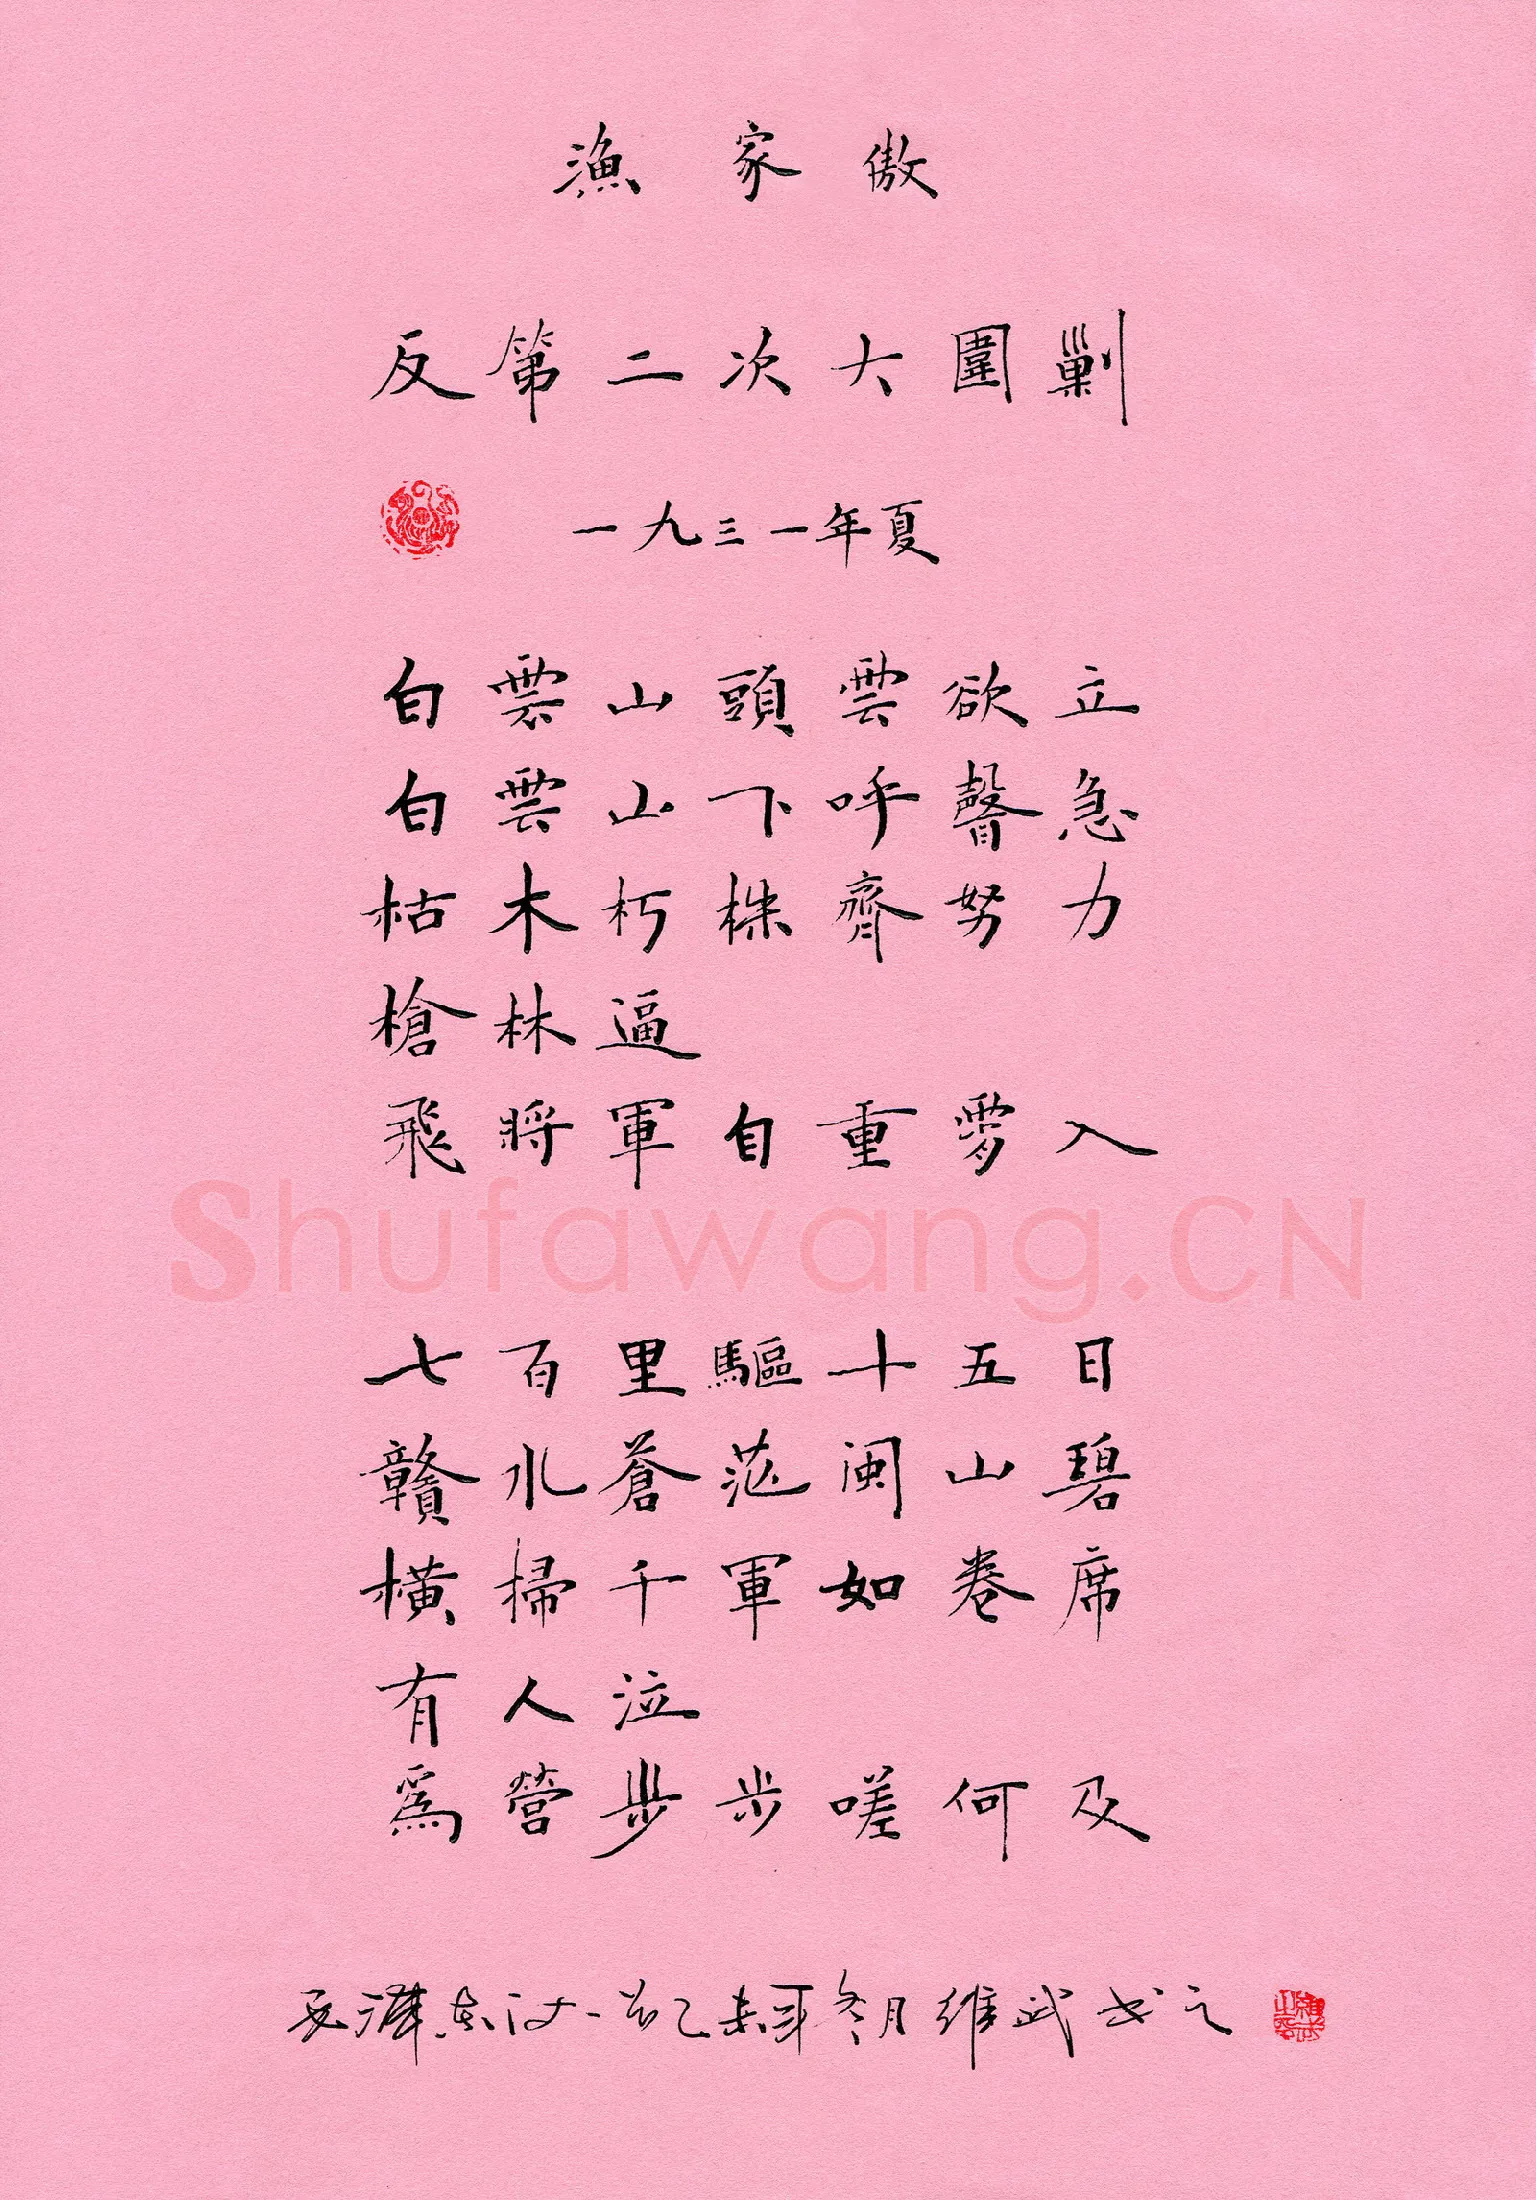 漁家傲
反第二次大圍剿
一九三一年夏
白雲山頭雲欲立
白雲山下呼聲急
枯木朽株齊努力
槍林逼
飛將軍自重霄入
Shufawang.CN
七百里驅十五日
贛水蒼茫閩山碧
橫掃千軍如卷席
有人泣
爲營步步嗟何及
毛澤東詞一首乙未年冬月維武書之